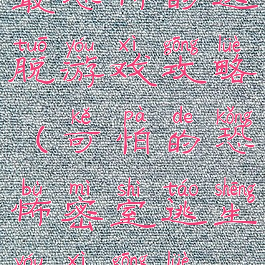 最恐怖的逃
tuō yóu xì gōng lüè
脱游戏攻略
kě pà de kǒng
（可怕的恐
bù mì shì táo shēng
怖密室逃生
yóu xì gōng lüè